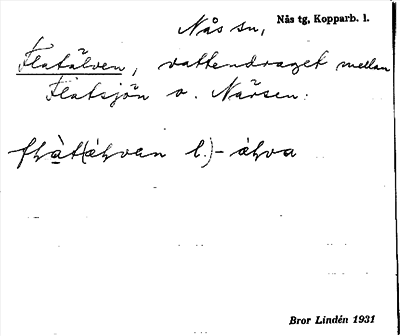 Nås sn, Nås tg, Kopparb. l.
Flatälven, vattendraget mellan
Flatsjön o. Närsen:
fḷàt(áḷvan l.)-áḷva
Bror Lindén 1931